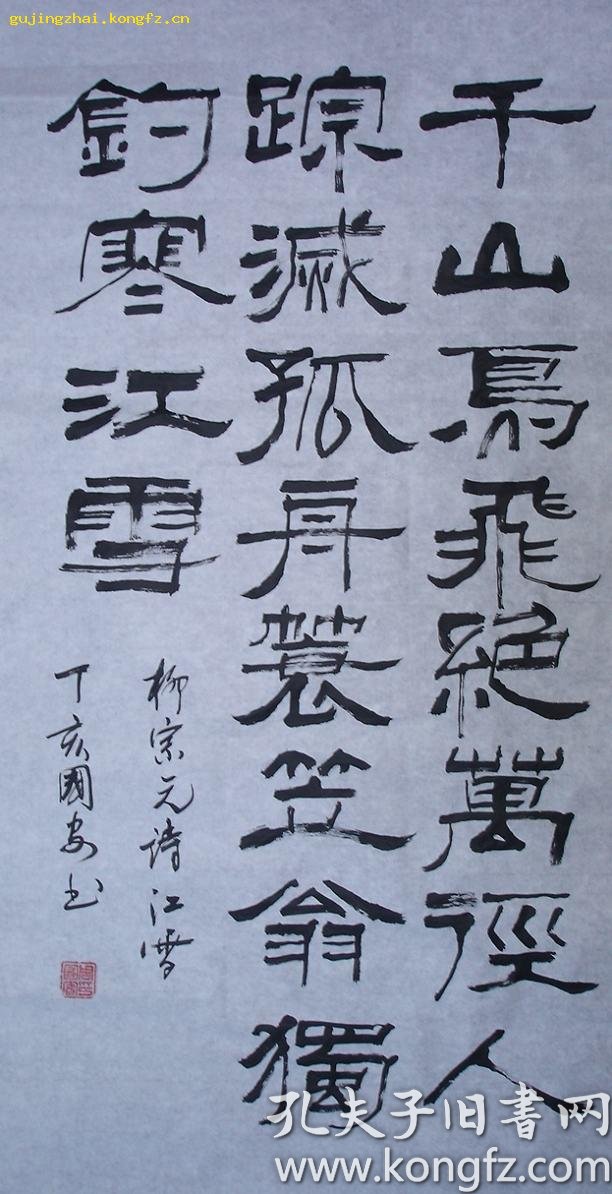 gujingzhai.kongfz.cn
千山鳥飛絕萬徑人
踪滅孤舟蓑笠翁獨
釣寒江雪
柳宗元詩江雪
丁亥國安书
孔夫子旧书网
www.kongfz.com